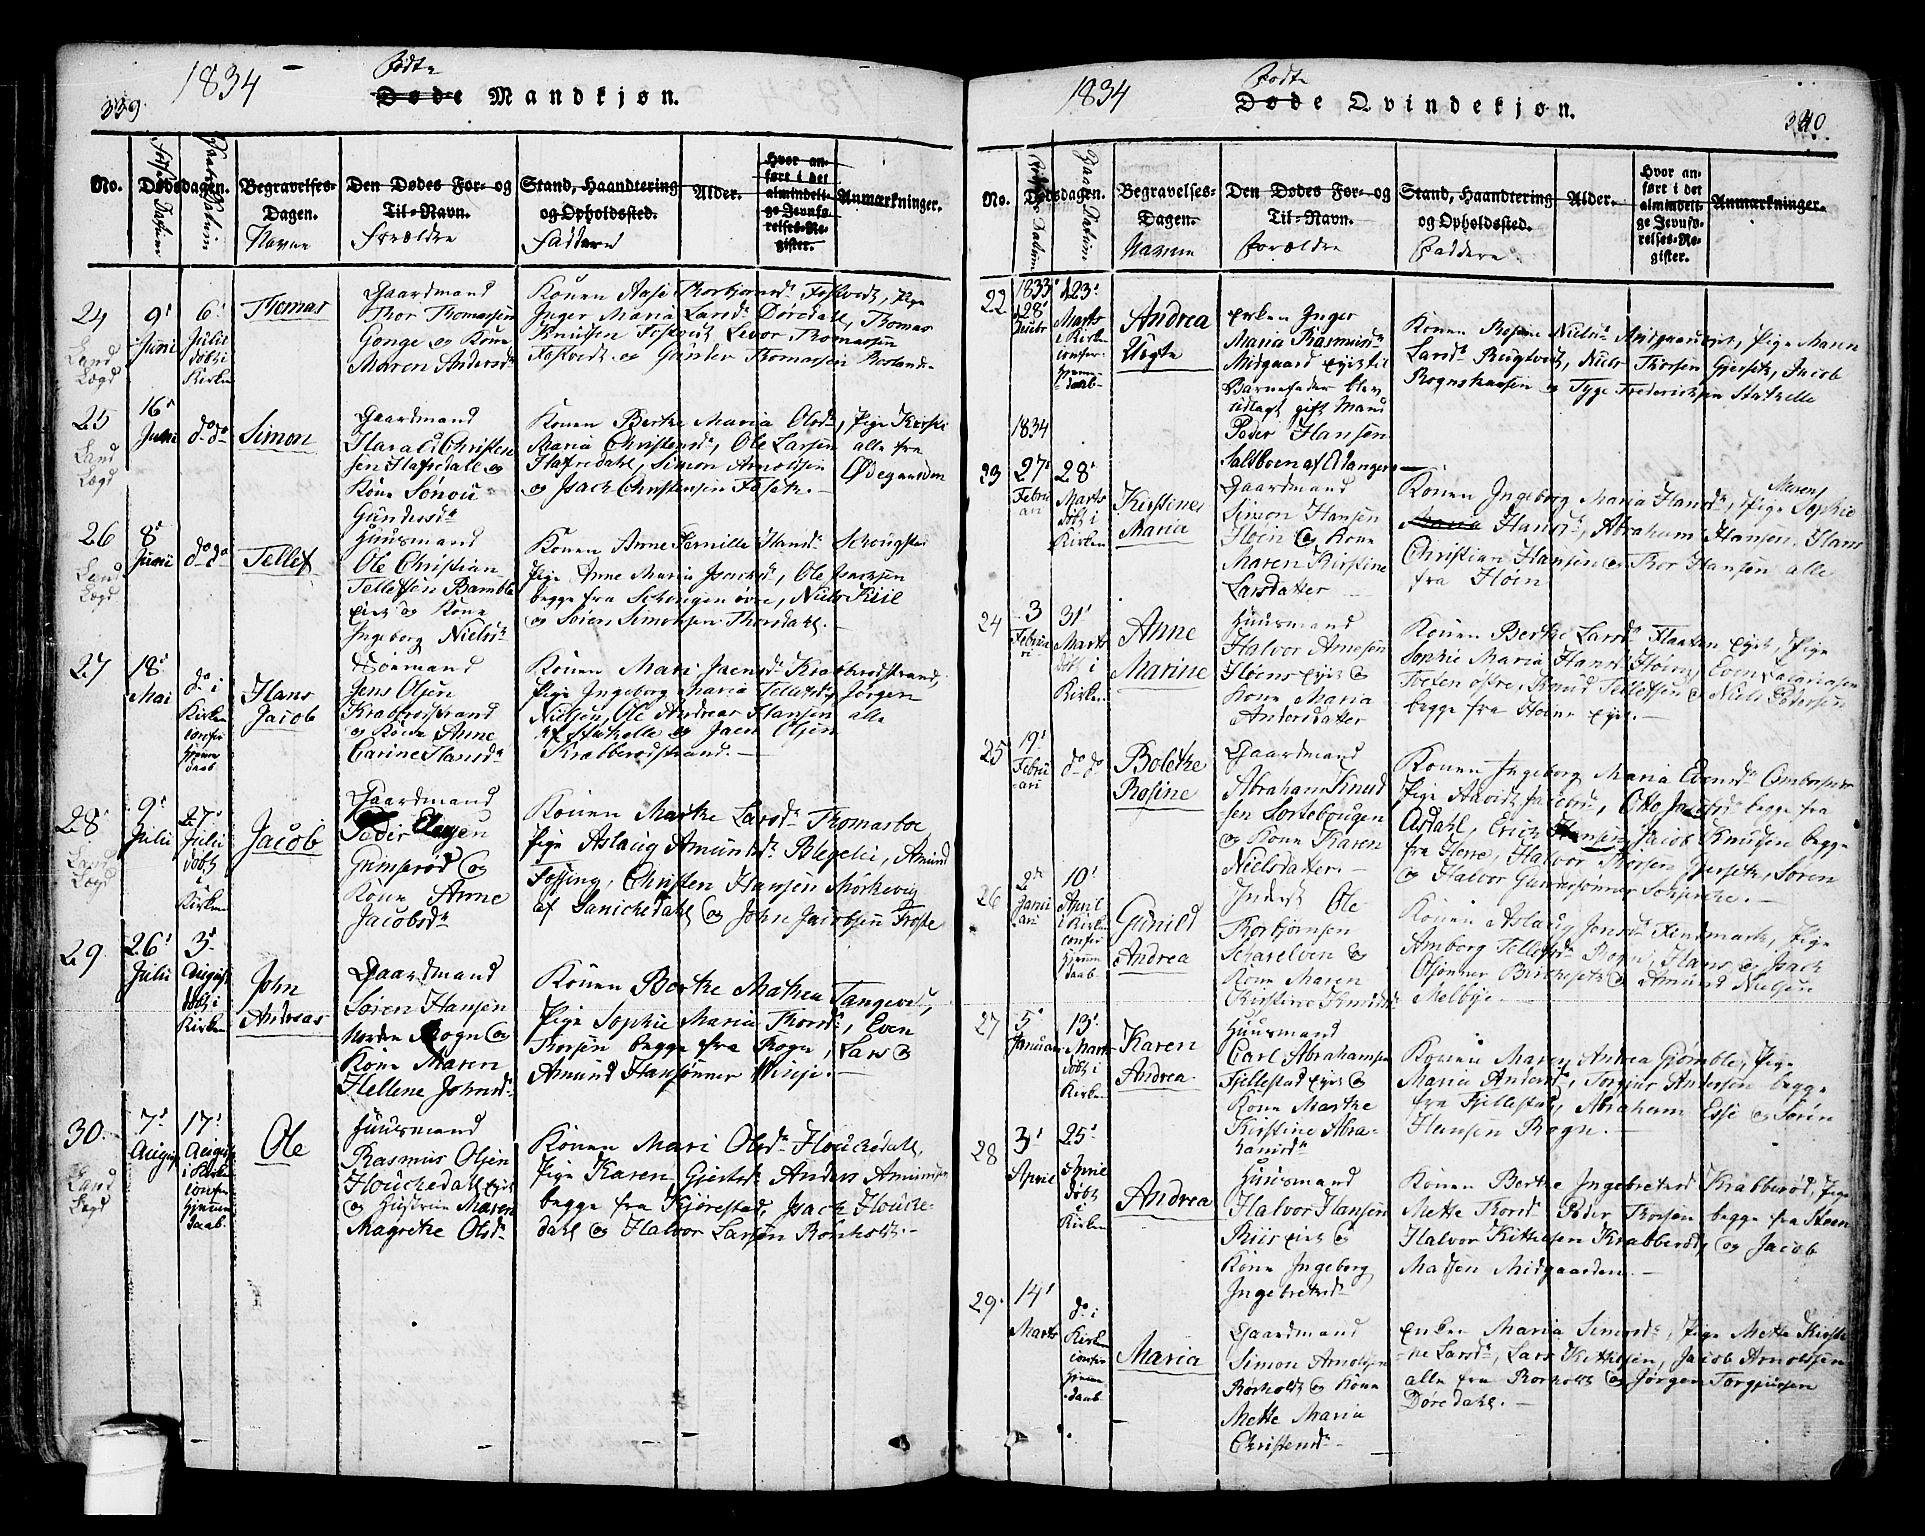 339.
1834
Fødte
Døde Mandkjøn.
No.
Dødsdagen.
Fødsels Datum
Daabs Datum
Begravelses-
Dagen.
Navne
Den Dødes For- og
Til-Navn.
Forældre
Stand, Haandtering
og Opholdssted.
Faddere
Alder.
Hvor an-
ført i det
almindelt-
ge Jevnfø-
relses-Re-
gister.
Anmærkninger.
24
Land
Lægd
9de
Juni
6te
Julii
døbt i
Kirken
Thomas
Gaardmand
Thor Thomassen
Gonge og Kone
Maren Andersdr
Konen Aase Thorbjørnsdr Fostvedt, Pige
Inger Maria Larsdr Døredahl, Thomas
Knudsen Fostvedt Levor Thomassen
Fostvedt og Gunder Thomassen
25
Land
Lægd
16de
Juni
do do
Simon
Gaardmand
Harald Christen
sen Hafredahl og
Kone Sønou
Gundersdr
Konen Berthe Maria Olsdr, Pige Kirstie
Maria Christensdr, Ole Larsen alle fra
Hafredahl, Simon Arnoldsen Ødegaarden
og Isach Christensen Foseth.
26
Land
Lægd
8de
Juni
do do
Tellef
Huusmand
Ole Christian
Tellefsen Bamble
Eiet og Kone
Ingeborg Nielsdr
Konen Anne Pernille Hansdr
Pige Anne Maria Isachsdr, Ole Isachsen
begge fra Schougen øvre, Niels Kiil
og Søren Simonsen Thorsdahl.
27
18de
Mai
do i
Kirken
confir
hjemme
daab
Hans
Jacob
Søemand
Jens Olsen
Krabberødstrand
og Kone Anne
Carine Hansdr
Konen Mari Jaensdr Krabberødstrand,
Pige Ingeborg Maria Tellefsdr, Jørgen
Nielsen, Ole Andreas Hansen alle
af Stathelle og Jaen Olsen
Krabberødstrand.
28
Land
Lægd
9de
Julii
27de
Julii
døbt
i
Kirken
Jacob
Gaardmand
Peder
Gumserød og
Kone Anne
Jacobsdr
Konen Marthe Larsdr Thomasboe
Pige Aslaug Amundsdr Blegelie, Amund
Fossing, Christen Hansen Mørkevig
af Danichedahl og John Jacobsen Troste
29
26de
Julii
3de
August
døbt i
Kirken
John
Andreas
Gaardmand
Søren Hansen
Nordre Rogn og
Kone Maren
Hellene Johnsdr
Konen Berthe Mathea Tangevald,
Pige Sophie Maria Thorsdr, Even
Thorsen begge fra Rogn, Lars og
Amund Hansønner Vinje.
30
Land
Lægd
7de
August
17de
August
i Kirken
confir
hjemme
daab
Ole
Huusmand
Rasmus Olsen
Houchedahl eiet
og Hustrue Maren
Magrethe Olsdr
Konen Mari Olsdr Houchedahl,
Pige Karen Gjertsdr Anders Amundsen
begge fra Kjørestad, Isach Houche-
dahl og Halvor Larsen Rønholdt.
1834
Fødte
Døde Qvindekjøn.
340.
No.
Dødsdagen.
Fødsels Datum
Daabs Datum
Begravelses-
Dagen.
Navne
Den Dødes For- og
Til-Navn.
Forældre
Stand, Haandtering
og Opholdssted.
Faddere
Alder.
Hvor an-
ført i det
almindelt-
ge Jevnfø-
relses-Re-
gister.
Anmærkninger.
22
1833
28de
23de
Marts
i Kirken
confir
hjemme
daab
Andrea
Enken Inger
Maria Rasmusdr
Midgaard Eiet til
Barnefader blev
udlagt gift Mand
Peder Hansen
Saltboen af Eidanger
Konen Rosine Nielsdr Midgaardeiet, Pige Maren
Larsdr Rugtvedt, Niels Thorsen Gjerseth, Jacob
Rognshausen og Tyge Fredericksen Stathelle
1834
23
27de
Febru
ari
28de
Marts
døbt i
Kirken
Kirstine
Maria
Gaardmand
Simon Hansen
Hoen og Kone
Maren Kirstine
Larsdatter
Konen Ingeborg Maria Hansdr, Pige Sophie
Maren
Maria Hansdr, Abraham Hansen, Hans
Christian Hansen og Thor Hansen alle
fra Hoen
24
3
Februa
ri
31te
Marts
døbt i
Kirken
Anne
Marine
Huusmand
Halvor Amosen
Hoens eiet og
Kone Maria
Andersdatter
Konen Berthe Larsdr Flaaten eiet, Pige
Sophie Maria Hansdr Hoen, Even Zachariasen
Tveten østre, Knud Tellefsen og Niels Pedersen
begge fra Hoens eiet.
25
19de
Febru
ari
do do
Bolethe
Rosine
Gaardmand
Abraham Knud
sen Sortebougen
og Kone Karen
Nielsdatter.
Konen Ingeborg Maria Evensdr
Pige Jacobsdr, Otto Jacobsen begge fra
Asdahl, Erich Hansen, Jacob Knudsen begge
fra Herre, Halvor Thorsen Gjerseth, Søren
og Halvor Gunnersønner
26
2de
Janu
ari
10de
April
i Kirken
confir
hjemme
daab
Gunild
Andrea
Inderst Ole
Thorbjørnsen
Skravelven og
Kone Maren
Kirstine Knudsdr
Konen Aslaug Jensdr Findmark, Pige
Amborg Tellefsdr Rogn, Hans og Isach
Olsønner Birkeseth og Amund Nielsen
Melbye.
27
5de
Januar
13de
Marts
døbt i
Kirken
Karen
Andrea
Huusmand
Carl Abrahamsen
Fjellestad eiet og
Kone Marthe
Kirstine Abra-
hamsdr
Konen Maren Andrea Grømble, Pige
Maria Andersdr, Torgius Andersen begge
fra Fjellestad, Abraham Esse og Søren
Hansen Rogn.
28
3de
April
25de
April
døbt
i
Kirken
Andrea
Huusmand
Halvor Hansen
Riis eiet og
Kone Ingeborg
Ingebretsdr
Konen Berthe Ingebretsd Krabberød, Pige
Mette Thorsd Peder Thorsen begge fra Steen
Halvor Kittelsen Krabberød, og Jacob
Madsen Midgaarden.
29
14de
Marts
do i
Kirken
confir
hjemme
daab
Maria
Gaardmand
Simon Arnoldsen
Rørholdt og Kone
Mette Maria
Christensdr
Enken Maria Simonsdr, Pige Mette Kirsti-
ne Larsdr, Lars Kittelsen, Jacob Arnoldssen
alle fra Rorholdt og Jørgen Torgiussen
Døredahl.